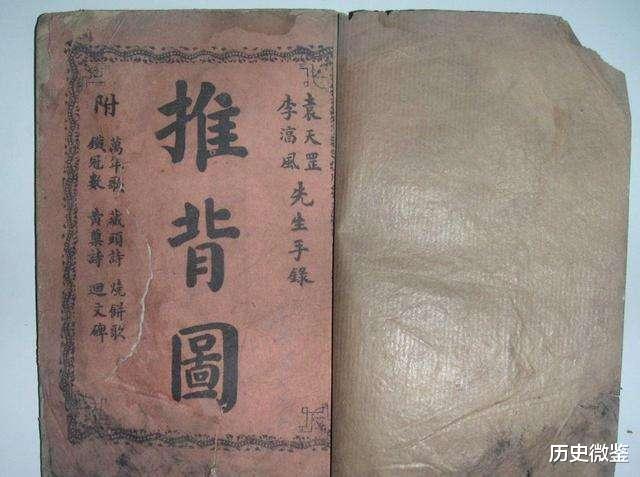 袁天罡
李湻風
先生手錄
推背圖
附
萬年歌 藏頭詩 燒餅歌
鐵冠數 黃蘗詩 迴文碑
历史微鉴